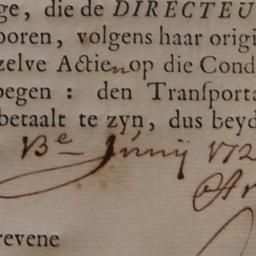 ge, die de DIRECTEU
ooren, volgens haar origi
zelve Actien op die Cond
pegen : den Tranſporta
betaalt te zyn, dus beyd
13e Junij 172
revene